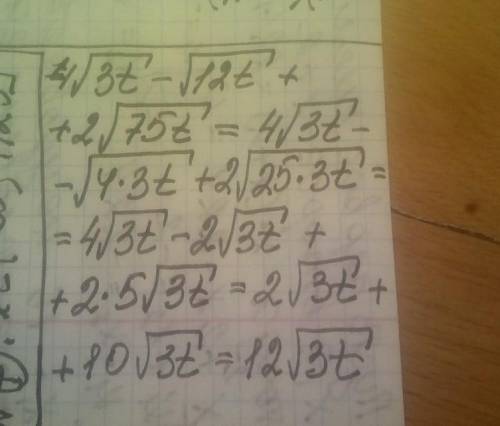 4√3t - √12t +
+2√75t = 4√3t -
-√4·3t + 2√25·3t =
= 4√3t - 2√3t +
+2·5√3t = 2√3t +
+10√3t = 12√3t